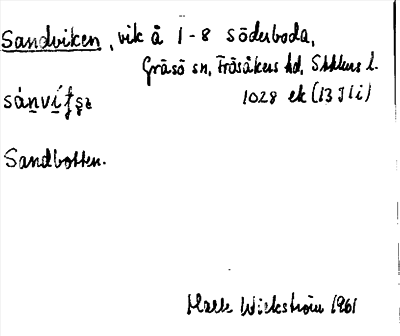 Sandviken, vik å 1-8 söderboda,
Gräsö sn, Frösåkers hd, Sthlms l.
1028 ek (13 I 1 i)
Sandbotten.
Wickström 1961